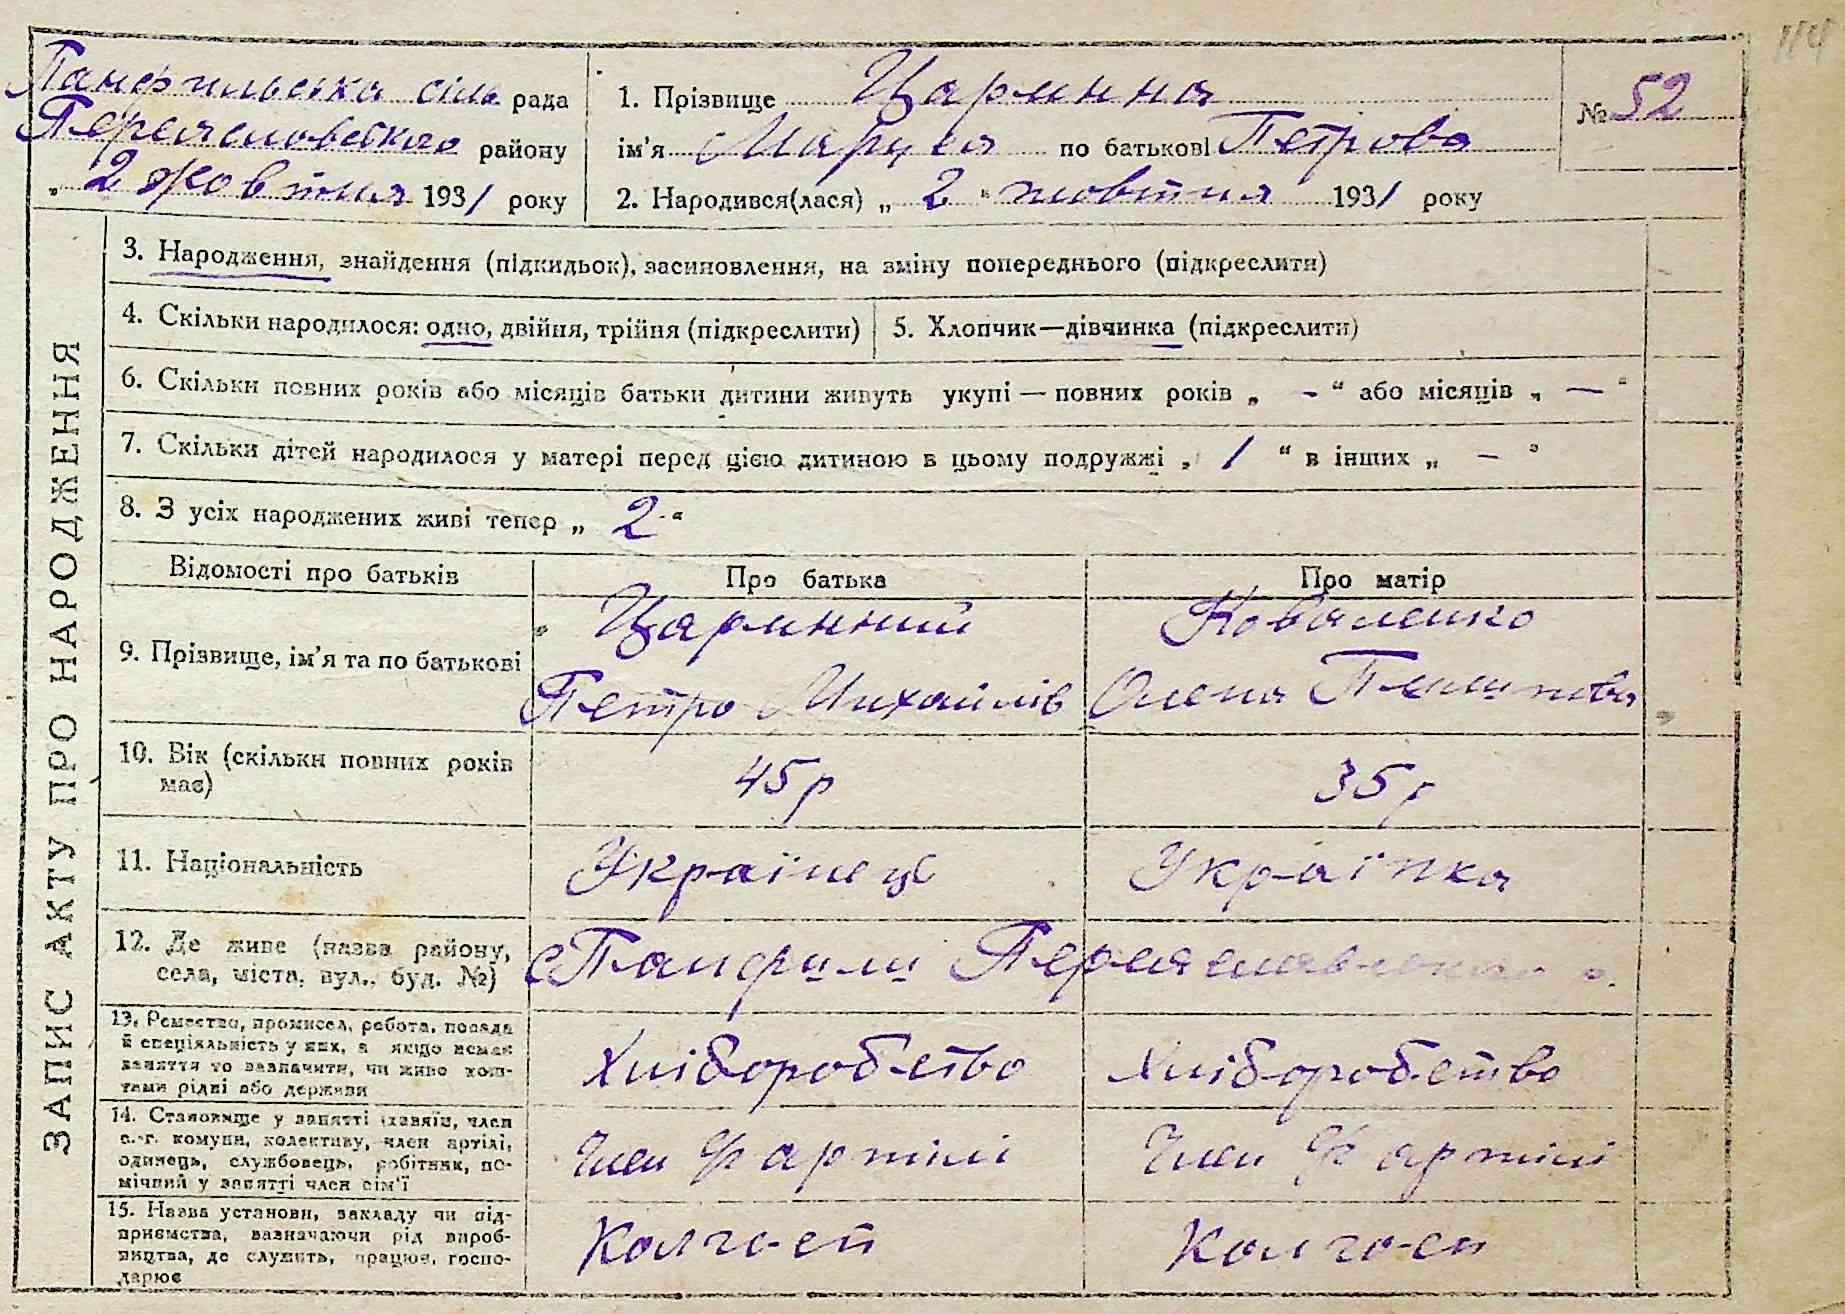 114
Панфильська сіль рада
Переяславського району
„ 2 жовтня 1931 року
1. Прізвище Царинна
ім'я Маруся по батькові Петрова
2. Народився(лася) „ 2 " жовтня 1931 року
№ 52
ЗАПИС АКТУ ПРО НАРОДЖЕННЯ
3. Народження, знайдення (підкидьок), засиновлення, на зміну попереднього (підкреслити)
4. Скільки народилося: одно, двійня, трійня (підкреслити)
5. Хлопчик—дівчинка (підкреслити)
6. Скільки повних років або місяців батьки дитини живуть укупі — повних років „ - " або місяців „ — "
7. Скільки дітей народилося у матері перед цією дитиною в цьому подружжі „ 1 " в інших „ - "
8. З усіх народжених живі тепер „ 2 "
Відомості про батьків Про батька Про матір
9. Прізвище, ім'я та по батькові
Царинний
Петро Михайлів
Коваленко
Олена
10. Вік (скільки повних років
має)
45 р
35 р
11. Національність
Українець
Українка
12. Де живе (назва району,
села, міста, вул., буд. №)
с Панфили Переяславського р.
13. Ремество, промисел, работа, посада
й спеціяльність у них, а якщо немає
заняття то зазначити, чи живе кош-
тами рідні або держави
Хліборобство
Хліборобство
14. Становище у занятті (хазяїн, член
с.-г. комуни, колективу, член артілі,
одинець, службовець, робітник, по-
мічний у занятті член сім'ї
Член артілі
Член артілі
15. Назва установи, закладу чи під-
приємства, зазначаючи рід вироб-
ництва, де служить, працює, госпо-
дарює
Колгосп
Колгосп